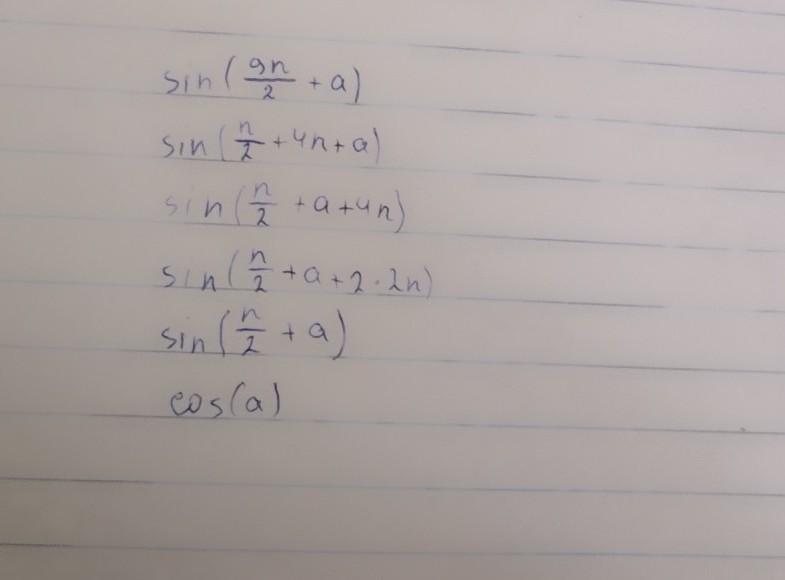 sin(9π/2 + a)
sin(π/2 + 4π + a)
sin(π/2 + a + 4π)
sin(π/2 + a + 2·2π)
sin(π/2 + a)
cos(a)